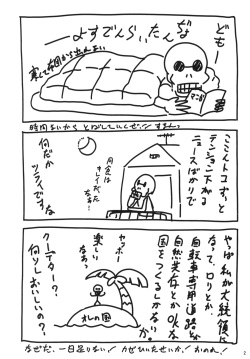 どもー
なだんたいらんでずすよー
寒くて布団から出れない
マンガ
時間ないから とばしていくぜ!! すまんっ
ここんトコ ずっと
テンション下がる
ニュースばかりで
月食は
キレイだった
なぁ…
何だか
ツライっす
な
やっぱ 私が大統領に
なって、ロリとか
自転車専用道路とか
自然共存とかOKな
国をつくるしかないか。
ヤッホー
楽しい
なぁ
オレの国
クーデター?
何ソレ おいしいの?
なぜだ、一日足りない! カゼひいたせいか! おのれ!